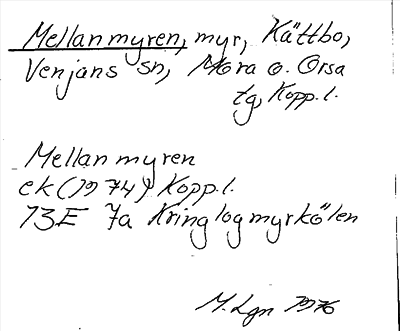 Mellanmyren, myr, Kättbo,
Venjans sn, Mora o. Orsa
tg, Kopp. l.
Mellanmyren
ek (1974) Kopp. l.
13E 7a Kringlogmyrkölen
M. Lgn 1976